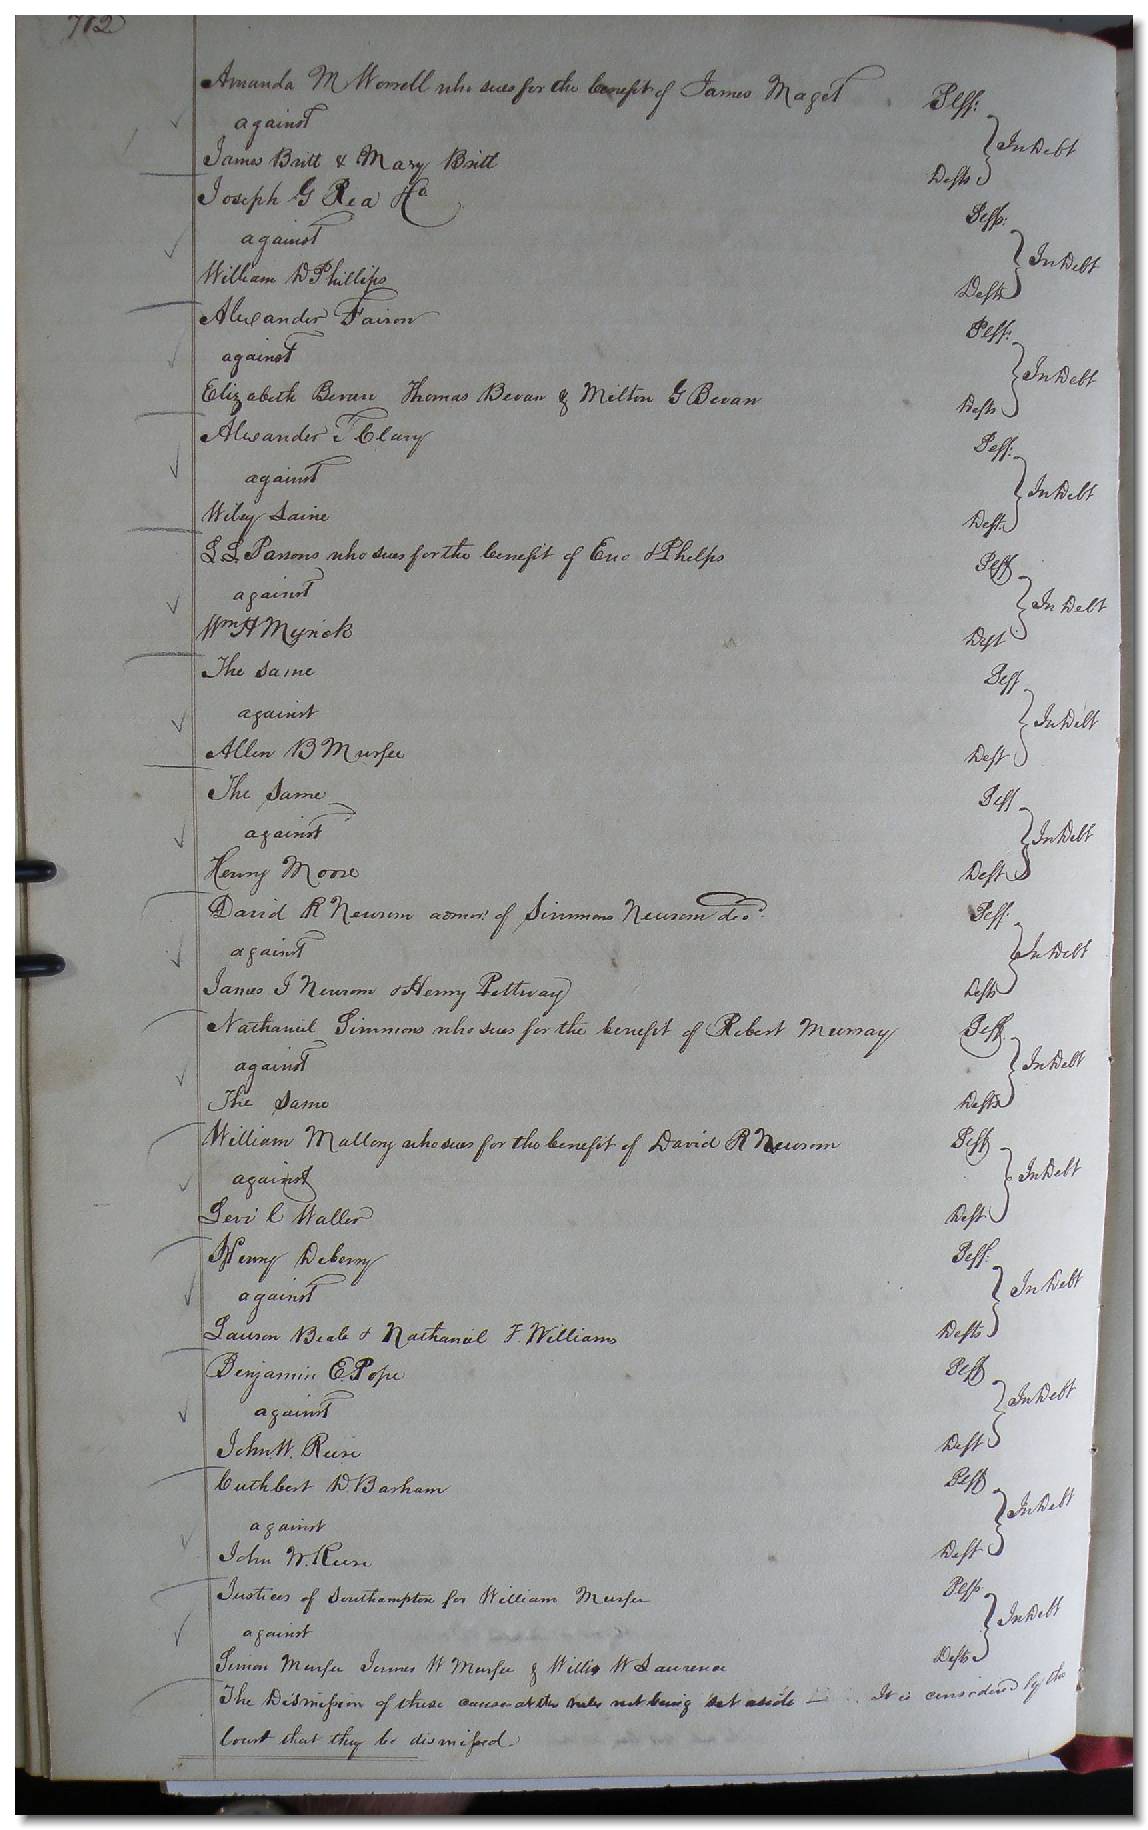 712
Amanda M Worrell who sues for the benefit of James Maget Plff:
against } In Debt
James Britt & Mary Britt Defts
Joseph G Rea Plff:
against } In Debt
William D Phillips Deft
Alexander Faison Plff:
against } In Debt
Elizabeth Bevan Thomas Bevan & Milton G Bevan Defts
Alexander T Clary Plff:
against } In Debt
Wiley Laine Deft
L L Parsons who sues for the benefit of & Phelps Plff
against } In Debt
Wm H Myrick Deft
The same Plff
against } In Debt
Allen B Murfee Deft
The same Plff
against } In Debt
Henry Moore Deft
David R Newsom admor: of Simmons Newsom decd. Plff:
against } In Debt
James J Newsom & Henry Pettway Defts
Nathaniel Simmons who sues for the benefit of Robert Murray Plff
against } In Debt
The same Defts
William Mallory who sues for the benefit of David R Newsom Plff
against } In Debt
Levi C Waller Deft
Henry Deberry Plff:
against } In Debt
Lawson Beale & Nathaniel F. Williams Defts
Benjamin E. Pope Plff
against } In Debt
John W. Reese Deft
Cuthbert D. Barham Plff
against } In Debt
John W. Reese Deft
Justices of Southampton for William Murfee Plff
against } In Debt
Simon Murfee James W Murfee & Willis W Laurence Defts
The Dismission of these causes at the rules not being set aside It is considered by the
Court that they be dismissed.